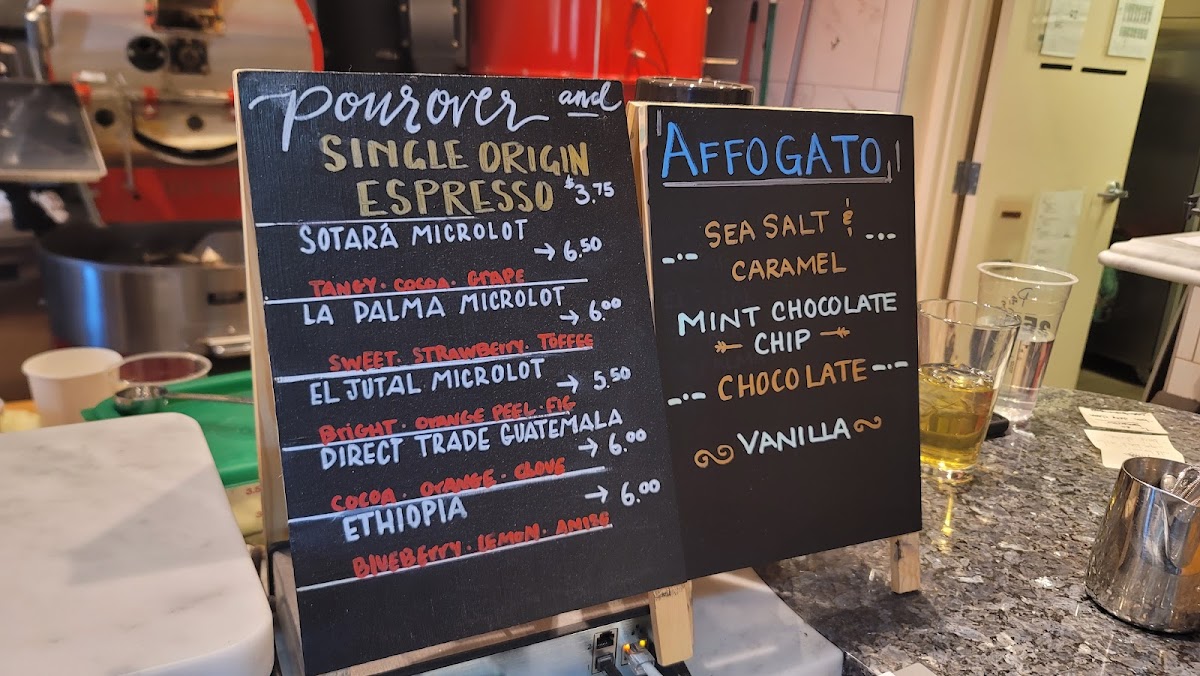 Pourover and
SINGLE ORIGIN
ESPRESSO $3.75
SOTARÁ MICROLOT
→ 6.50
TANGY · COCOA · GRAPE
LA PALMA MICROLOT
→ 6.00
SWEET · STRAWBERRY · TOFFEE
EL JUTAL MICROLOT
→ 5.50
BRIGHT · ORANGE PEEL · FIG
DIRECT TRADE GUATEMALA
→ 6.00
COCOA · ORANGE · CLOVE
ETHIOPIA → 6.00
BLUEBERRY · LEMON · ANISE
AFFOGATO
SEA SALT &
CARAMEL
MINT CHOCOLATE
CHIP
CHOCOLATE
VANILLA